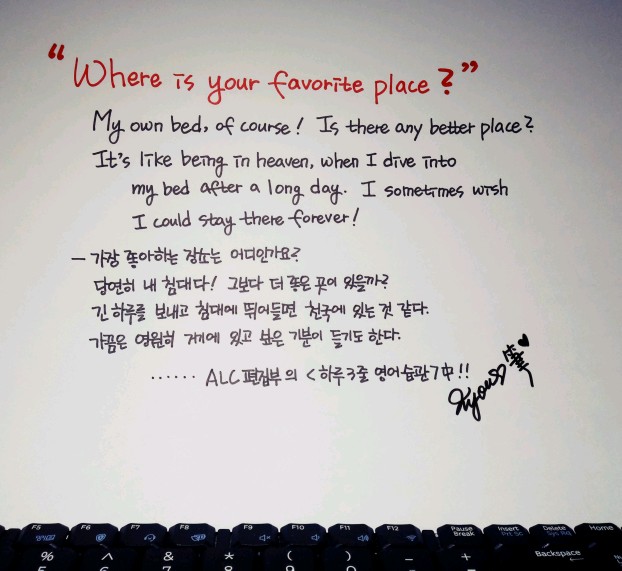 “Where is your favorite place?”
My own bed, of course! Is there any better place?
It's like being in heaven, when I dive into
my bed after a long day. I sometimes wish
I could stay there forever!
— 가장 좋아하는 장소는 어디인가요?
당연히 내 침대다! 그보다 더 좋은 곳이 있을까?
긴 하루를 보내고 침대에 뛰어들면 천국에 있는 것 같다.
가끔은 영원히 거기에 있고 싶은 기분이 들기도 한다.
...... ALC편집부의 <하루 3줄 영어습관> 中!!
F5 F6 F7 F8 F9 F10 F11 F12 Pause Break Insert Prt Sc Delete Sys RQ Home
% ^ & * ( ) _ + Backspace